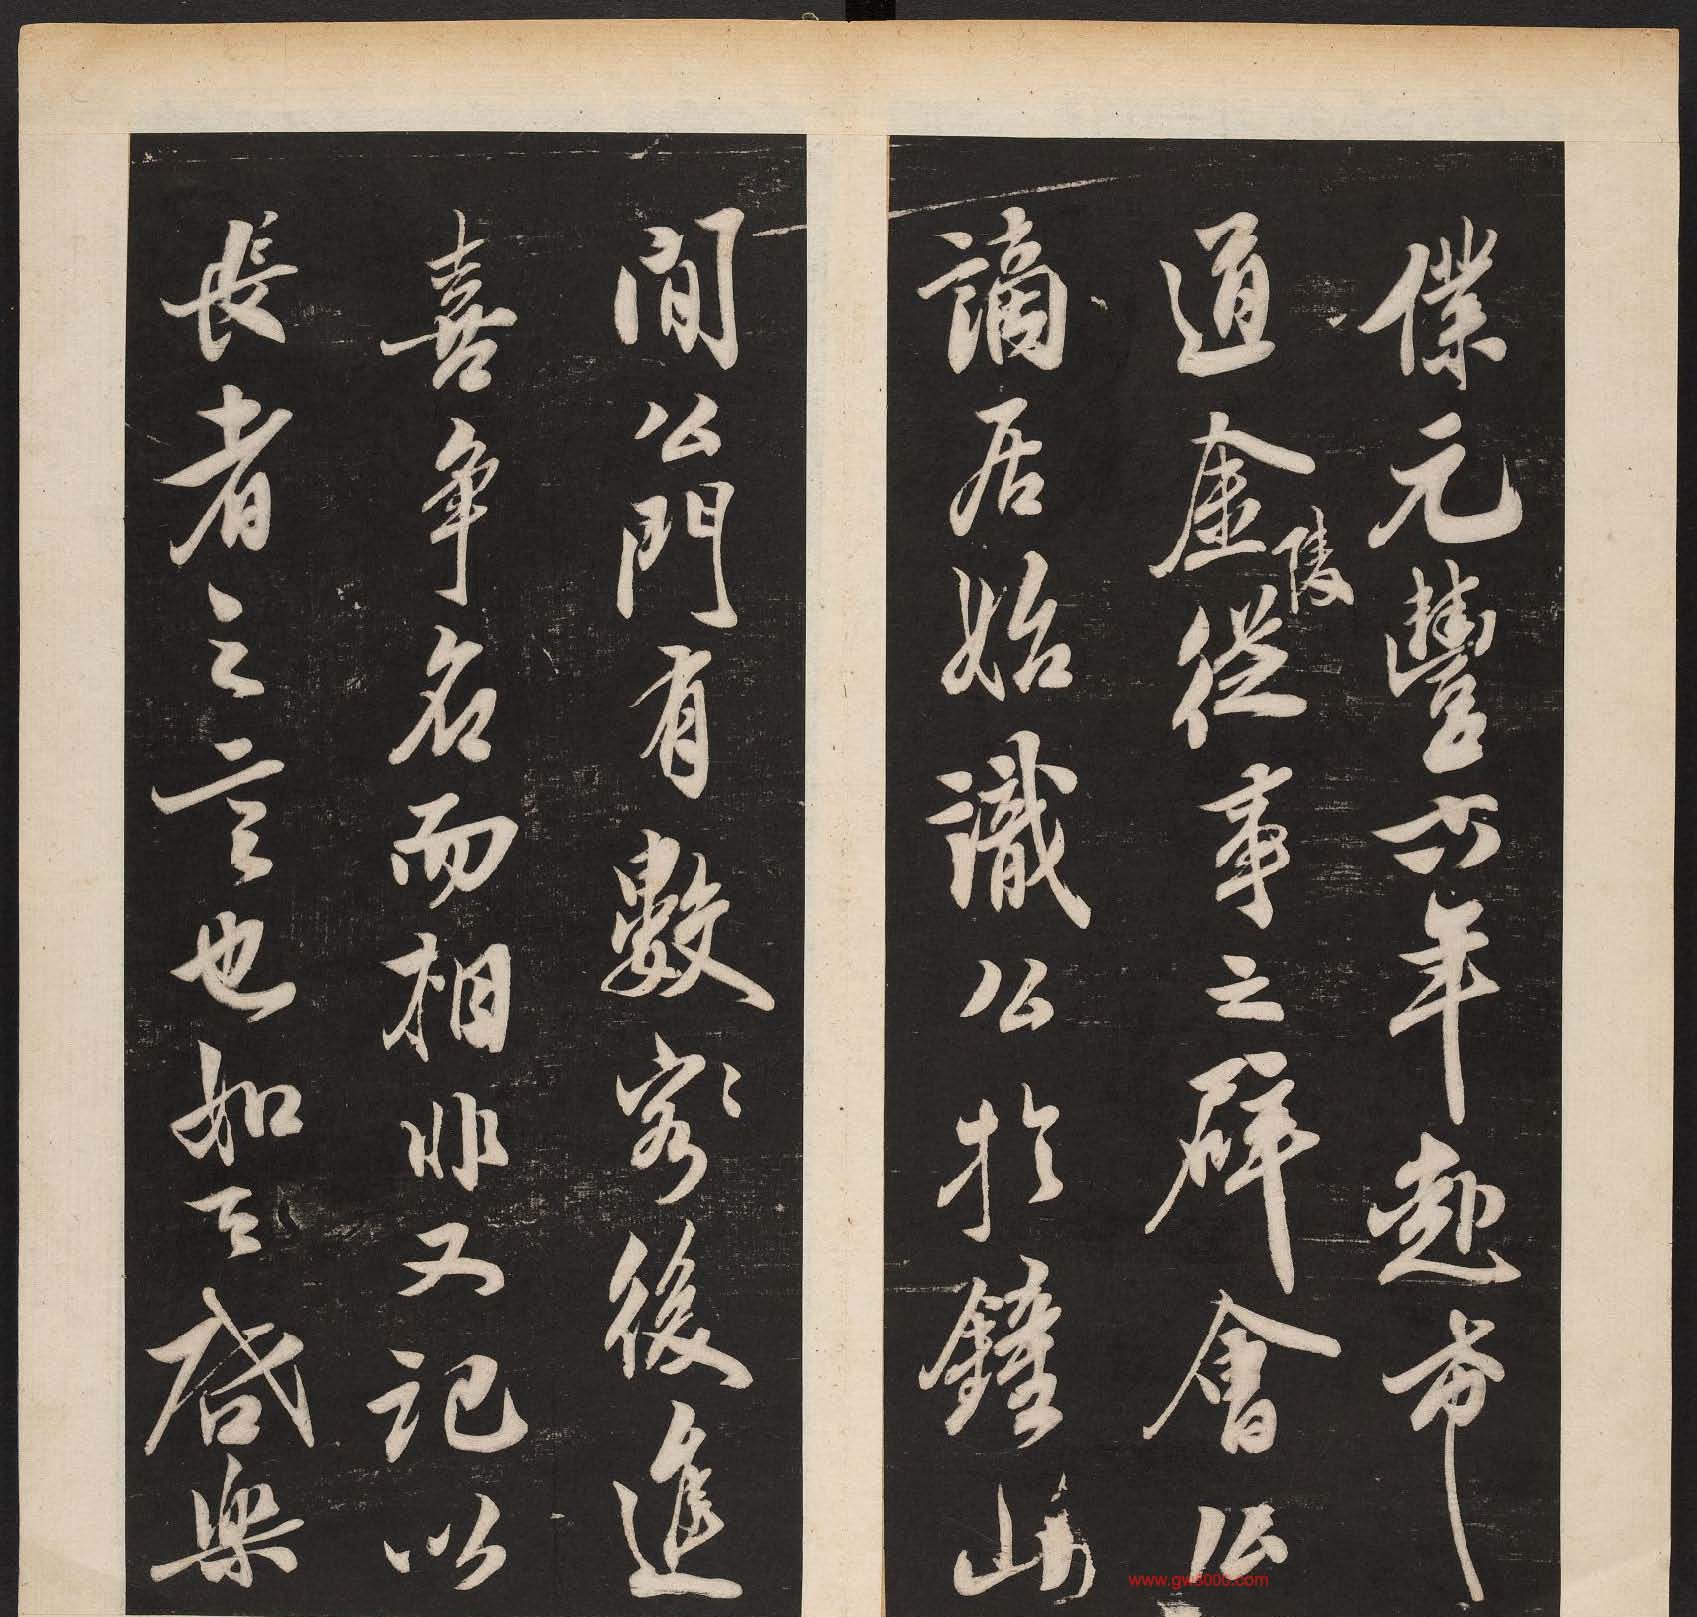 僕元豐六年赴希
道金陵從事之辟會公
謫居始識公於鐘山
間公門有數客後進
喜爭名而相非又記以
長者之言也如王啓樂
www.gw8000.com